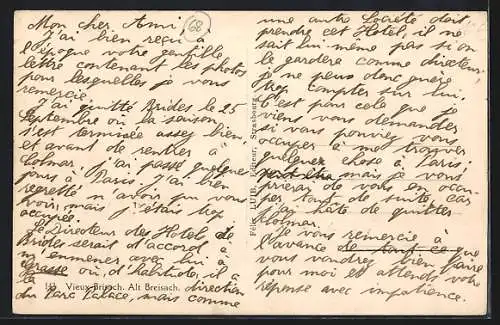 Mon cher Ami
68
J'ai bien reçu à
l'époque votre gentille
lettre contenant les photos
pour lesquelles je vous
remercie.
J'ai quitté Brides le 25
Septembre où la saison
s'est terminée assez bien
et avant de rentrer à
Colmar, j'ai passé quelques
jours à Paris. J'ai bien
regretté n'avoir pu vous
voir, mais j'étais trop
occupé.
Le Directeur des Hôtel de
Brides serait d'accord à
m'emmener avec lui à
Grasse où, d'habitude, il a
direction
du Parc Palace, mais comme
Vieux-Brisach. Alt Breisach.
Félix LUIB, éditeur, Strasbourg
une autre Société doit
prendre cet Hôtel, il ne
sait lui-même pas si on
le gardera comme directeur.
je ne peux donc guère
trop compter sur lui.
C'est pour cela que je
viens vous demander
si vous pouviez vous
occuper à me trouver
quelque chose à Paris.
mais je vous
prierai de vous en occu-
per tout de suite, car
j'ai hâte de quitter
Colmar.
Je vous remercie à
l'avance de tout ce que
vous voudrez bien faire
pour moi et attends votre
réponse avec impatience.